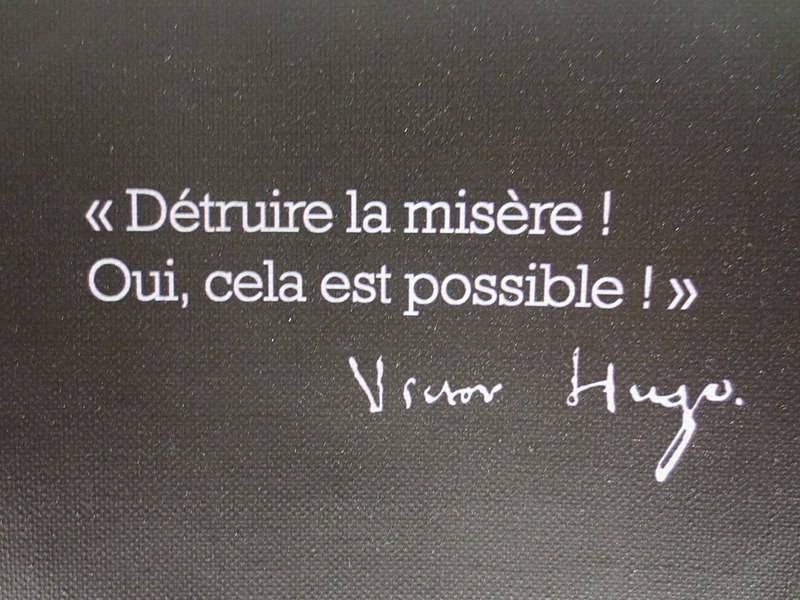 « Détruire la misère !
Oui, cela est possible ! »
Victor Hugo.